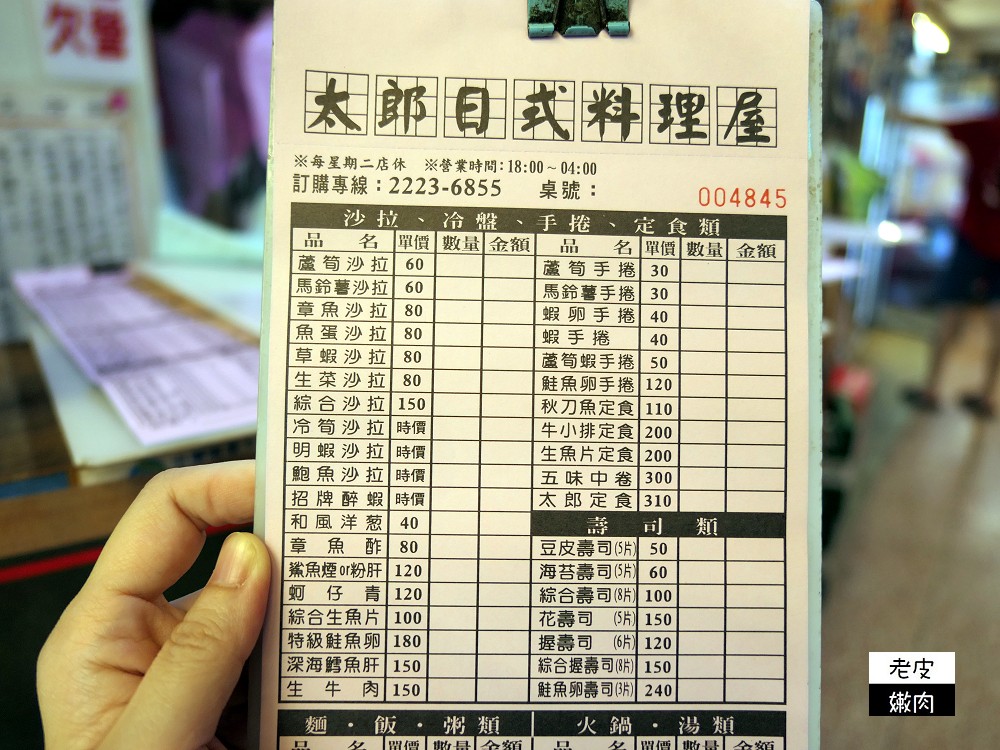 欠整
太郎日式料理屋
※每星期二店休 ※營業時間:18:00~04:00
訂購專線:2223-6855 桌號:
004845
沙拉、冷盤、手捲、定食類
品名 單價 數量 金額
蘆筍沙拉 60
馬鈴薯沙拉 60
章魚沙拉 80
魚蛋沙拉 80
草蝦沙拉 80
生菜沙拉 80
綜合沙拉 150
冷筍沙拉 時價
明蝦沙拉 時價
鮑魚沙拉 時價
招牌醉蝦 時價
和風洋葱 40
章魚酢 80
鯊魚煙or粉肝 120
蚵仔青 120
綜合生魚片 100
特級鮭魚卵 180
深海鱈魚肝 150
生牛肉 150
品名 單價 數量 金額
蘆筍手捲 30
馬鈴薯手捲 30
蝦卵手捲 40
蝦手捲 40
蘆筍蝦手捲 50
鮭魚卵手捲 120
秋刀魚定食 110
牛小排定食 200
生魚片定食 200
五味中卷 300
太郎定食 310
壽司類
豆皮壽司(5片) 50
海苔壽司(5片) 60
綜合壽司(8片) 100
花壽司(5片) 150
握壽司(6片) 120
綜合握壽司(8片) 150
鮭魚卵壽司(3片) 240
麵・飯・粥類
品名 單價 數量 金額
火鍋・湯類
品名 單價 數量 金額
老皮
嫩肉